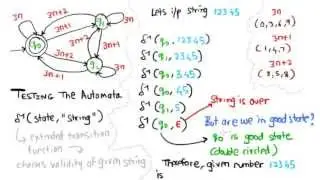 3n
3n+1
3n
q0
3n+2
q1
3n+2
3n+1
3n+2
3n+1
q2
3n
TESTING THE Automata
δ^ (state, "string")
extended transition
function
checks validity of given string
Lets i/p string 12345
δ^ (q0, 12345)
δ^ (q1, 2345)
δ^ (q0, 345)
δ^ (q0, 45)
δ^ (q1, 5)
δ^ (q0, ε)
String is over
But are we in good state?
q0 is good state
(double circled)
Therefore, given number 12345
is
3n
(0,3,6,9)
3n+1
(1,4,7)
3n+2
(2,5,8)